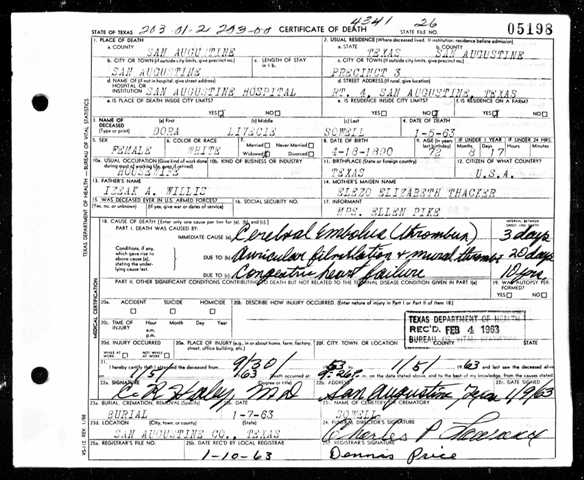 4341 26
STATE OF TEXAS 203-01-2 203-00 CERTIFICATE OF DEATH STATE FILE NO. 05198
1. PLACE OF DEATH 2. USUAL RESIDENCE (Where deceased lived. If institution: residence before admission)
a. COUNTY SAN AUGUSTINE a. STATE TEXAS b. COUNTY SAN AUGUSTINE
b. CITY OR TOWN (If outside city limits, give precinct no.) c. LENGTH OF STAY in 1b. c. CITY OR TOWN (If outside city limits, give precinct no.)
SAN AUGUSTINE PRECINCT 3
d. NAME OF (If not in hospital, give street address) d. STREET ADDRESS (If rural, give location)
HOSPITAL OR INSTITUTION SAN AUGUSTINE HOSPITAL RT. 4, SAN AUGUSTINE, TEXAS
e. IS PLACE OF DEATH INSIDE CITY LIMITS? e. IS RESIDENCE INSIDE CITY LIMITS? f. IS RESIDENCE ON A FARM?
YES NO YES NO YES NO
3. NAME OF DECEASED (Type or print) (a) First (b) Middle (c) Last 4. DATE OF DEATH
DORA SOWELL 1-5-63
5. SEX 6. COLOR OR RACE 7. Married Never Married 8. DATE OF BIRTH 9. AGE (In years last birthday) IF UNDER 1 YEAR IF UNDER 24 HRS.
FEMALE WHITE Widowed Divorced 4-18-1890 72 8 17
10a. USUAL OCCUPATION (Give kind of work done 10b. KIND OF BUSINESS OR INDUSTRY 11. BIRTHPLACE (State or foreign country) 12. CITIZEN OF WHAT COUNTRY?
HOUSEWIFE TEXAS U.S.A.
13. FATHER'S NAME 14. MOTHER'S MAIDEN NAME
IZEAK A. WILLIS ELIZABETH THACKER
15. WAS DECEASED EVER IN U.S. ARMED FORCES? 16. SOCIAL SECURITY NO. 17. INFORMANT
(Yes, no, or unknown) (If yes, give war or dates of service) MRS. ELLEN PIKE
18. CAUSE OF DEATH [Enter only one cause per line for (a), (b), and (c).] INTERVAL BETWEEN ONSET AND DEATH
PART I. DEATH WAS CAUSED BY:
IMMEDIATE CAUSE (a) Cerebral Embolus (thrombus) 3 days
Conditions, if any, which gave rise to above cause (a), stating the underlying cause last.
DUE TO (b) Auricular fibrillation & mural thrombus 20 days
DUE TO (c) Congestive heart failure 10 yrs
PART II. OTHER SIGNIFICANT CONDITIONS CONTRIBUTING TO DEATH BUT NOT RELATED TO THE TERMINAL DISEASE CONDITION GIVEN IN PART I(a) 19. WAS AUTOPSY PERFORMED?
YES NO
20a. ACCIDENT SUICIDE HOMICIDE 20b. DESCRIBE HOW INJURY OCCURRED. (Enter nature of injury in Part I or Part II of item 18.)
20c. TIME OF INJURY Hour Month Day Year
a.m.
p.m.
TEXAS DEPARTMENT OF HEALTH
REC'D FEB 4 1963
BUREAU OF VITAL STATISTICS
20d. INJURY OCCURRED 20e. PLACE OF INJURY (e.g., in or about home, farm, factory, street, office building, etc.) 20f. CITY, TOWN, OR LOCATION COUNTY STATE
WHILE AT WORK NOT WHILE AT WORK
21. I hereby certify that I attended the deceased from 9/30/ 63 11/5/ 1963 and last saw the deceased alive
on 1/5/ 63 Death occurred at 9:26P m. on the date stated above, and to the best of my knowledge, from the causes stated.
22a. SIGNATURE (Degree or title) 22b. ADDRESS 22c. DATE SIGNED
M D San Augustine Texas 1/9/63
23a. BURIAL, CREMATION, REMOVAL (Specify) 23b. DATE 23c. NAME OF CEMETERY OR CREMATORY
BURIAL 1-7-63 SOWELL
23d. LOCATION (City, town, or county) (State) 24. FUNERAL DIRECTOR'S SIGNATURE
SAN AUGUSTINE CO., TEXAS Charles P.
25a. REGISTRAR'S FILE NO. 25b. DATE REC'D BY LOCAL REGISTRAR 25c. REGISTRAR'S SIGNATURE
1-10-63 Dennis Price
TEXAS DEPARTMENT OF HEALTH — BUREAU OF VITAL STATISTICS
MEDICAL CERTIFICATION